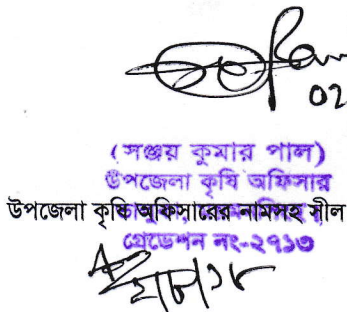 02
(সঞ্জয় কুমার পাল)
উপজেলা কৃষি অফিসার
উপজেলা কৃষি অফিসারের নামসহ সীল
গ্রেডেশন নং-২৭১৩